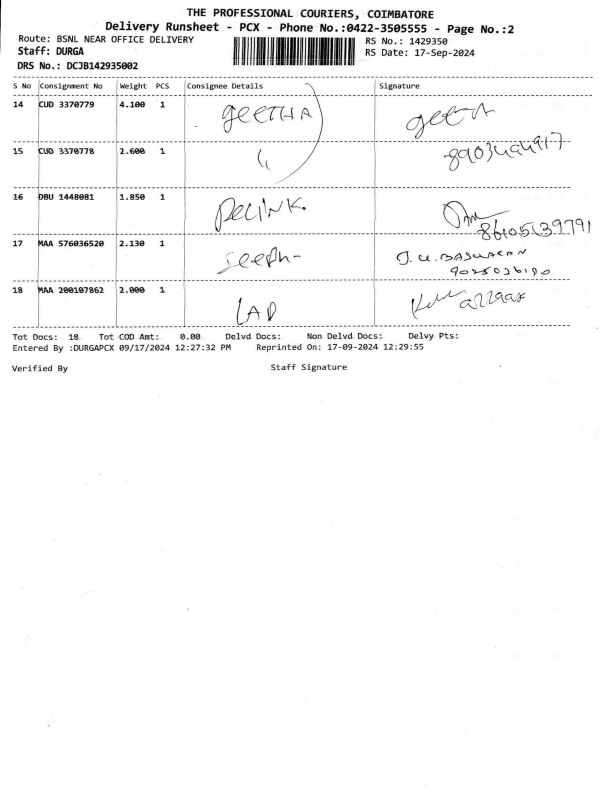 THE PROFESSIONAL COURIERS, COIMBATORE
Delivery Runsheet - PCX - Phone No.:0422-3505555 - Page No.:2
Route: BSNL NEAR OFFICE DELIVERY RS No.: 1429350
Staff: DURGA RS Date: 17-Sep-2024
DRS No.: DCJB142935002
S No Consignment No Weight PCS Consignee Details Signature
14 CUD 3370779 4.100 1 GEETHA geeta
15 CUD 3370778 2.600 1 8903494917
16 DBU 1448081 1.850 1
17 MAA 576036520 2.130 1
18 MAA 200107862 2.000 1 LAD
Tot Docs: 18 Tot COD Amt: 0.00 Delvd Docs: Non Delvd Docs: Delvy Pts:
Entered By :DURGAPCX 09/17/2024 12:27:32 PM Reprinted On: 17-09-2024 12:29:55
Verified By Staff Signature